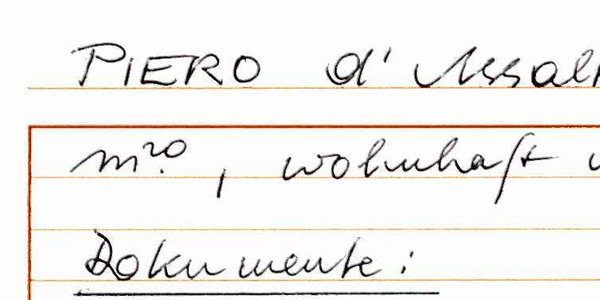 PIERO d'
m.ro, wohnhaft
Dokumente: